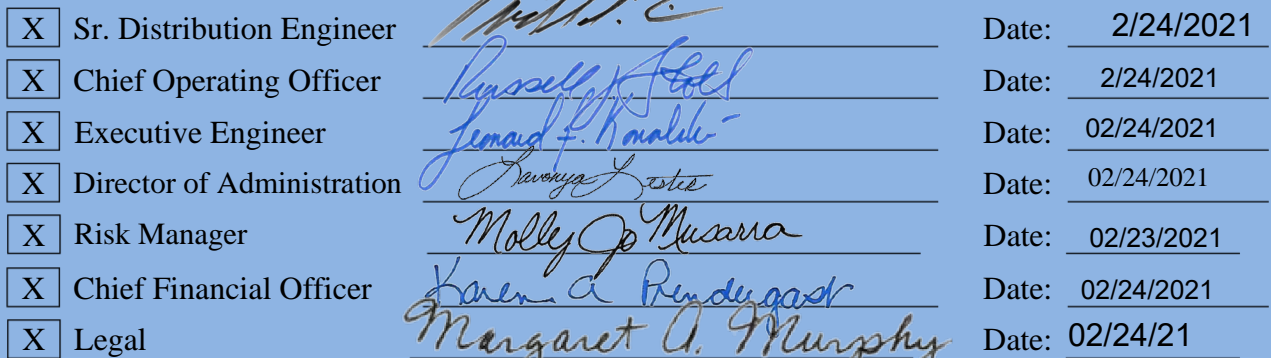 X Sr. Distribution Engineer Date: 2/24/2021
X Chief Operating Officer Russell J Stoll Date: 2/24/2021
X Executive Engineer Leonard F. Date: 02/24/2021
X Director of Administration Lavonya Lester Date: 02/24/2021
X Risk Manager Molly Jo Musarra Date: 02/23/2021
X Chief Financial Officer Karen A Prendergast Date: 02/24/2021
X Legal Margaret A. Murphy Date: 02/24/21